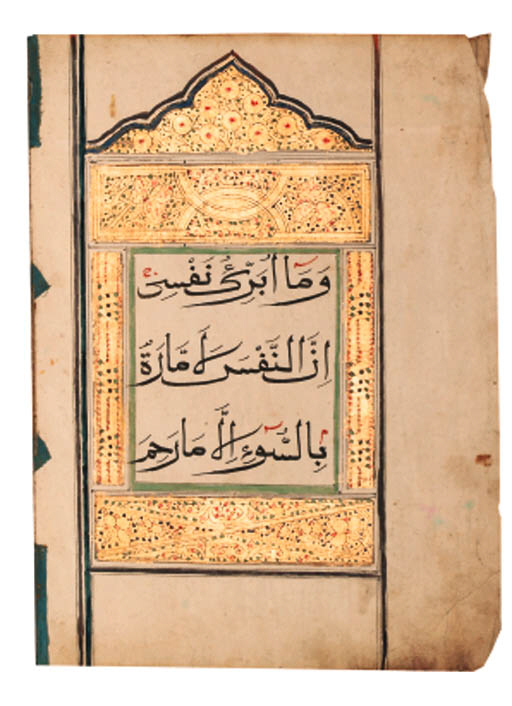 وَمَا أُبَرِّئُ نَفْسِى ج
اِنَّ النَّفْسَ لَاَمَّارَةٌ
بِالسُّوْءِ اِلَّا مَا رَحِمَ